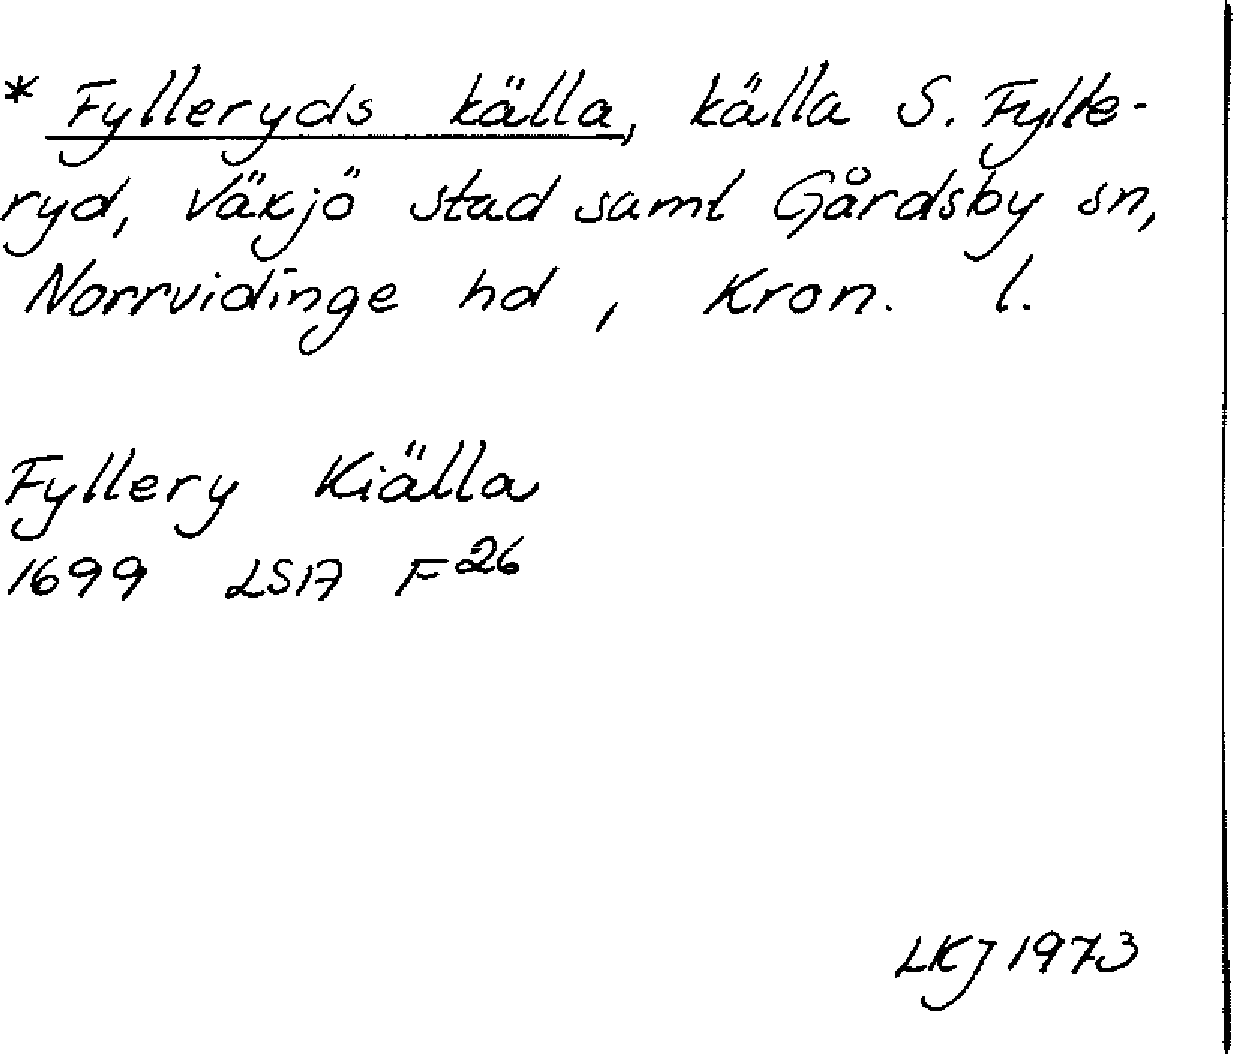 * Fylleryds källa, källa S. Fylle-
ryd, Växjö stad samt Gårdsby sn,
Norrvidinge hd, Kron. l.
Fyllery Kiälla
1699 LSA F26
LKJ 1973